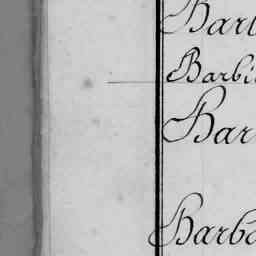 Barb
Barbi
Bar
Barba